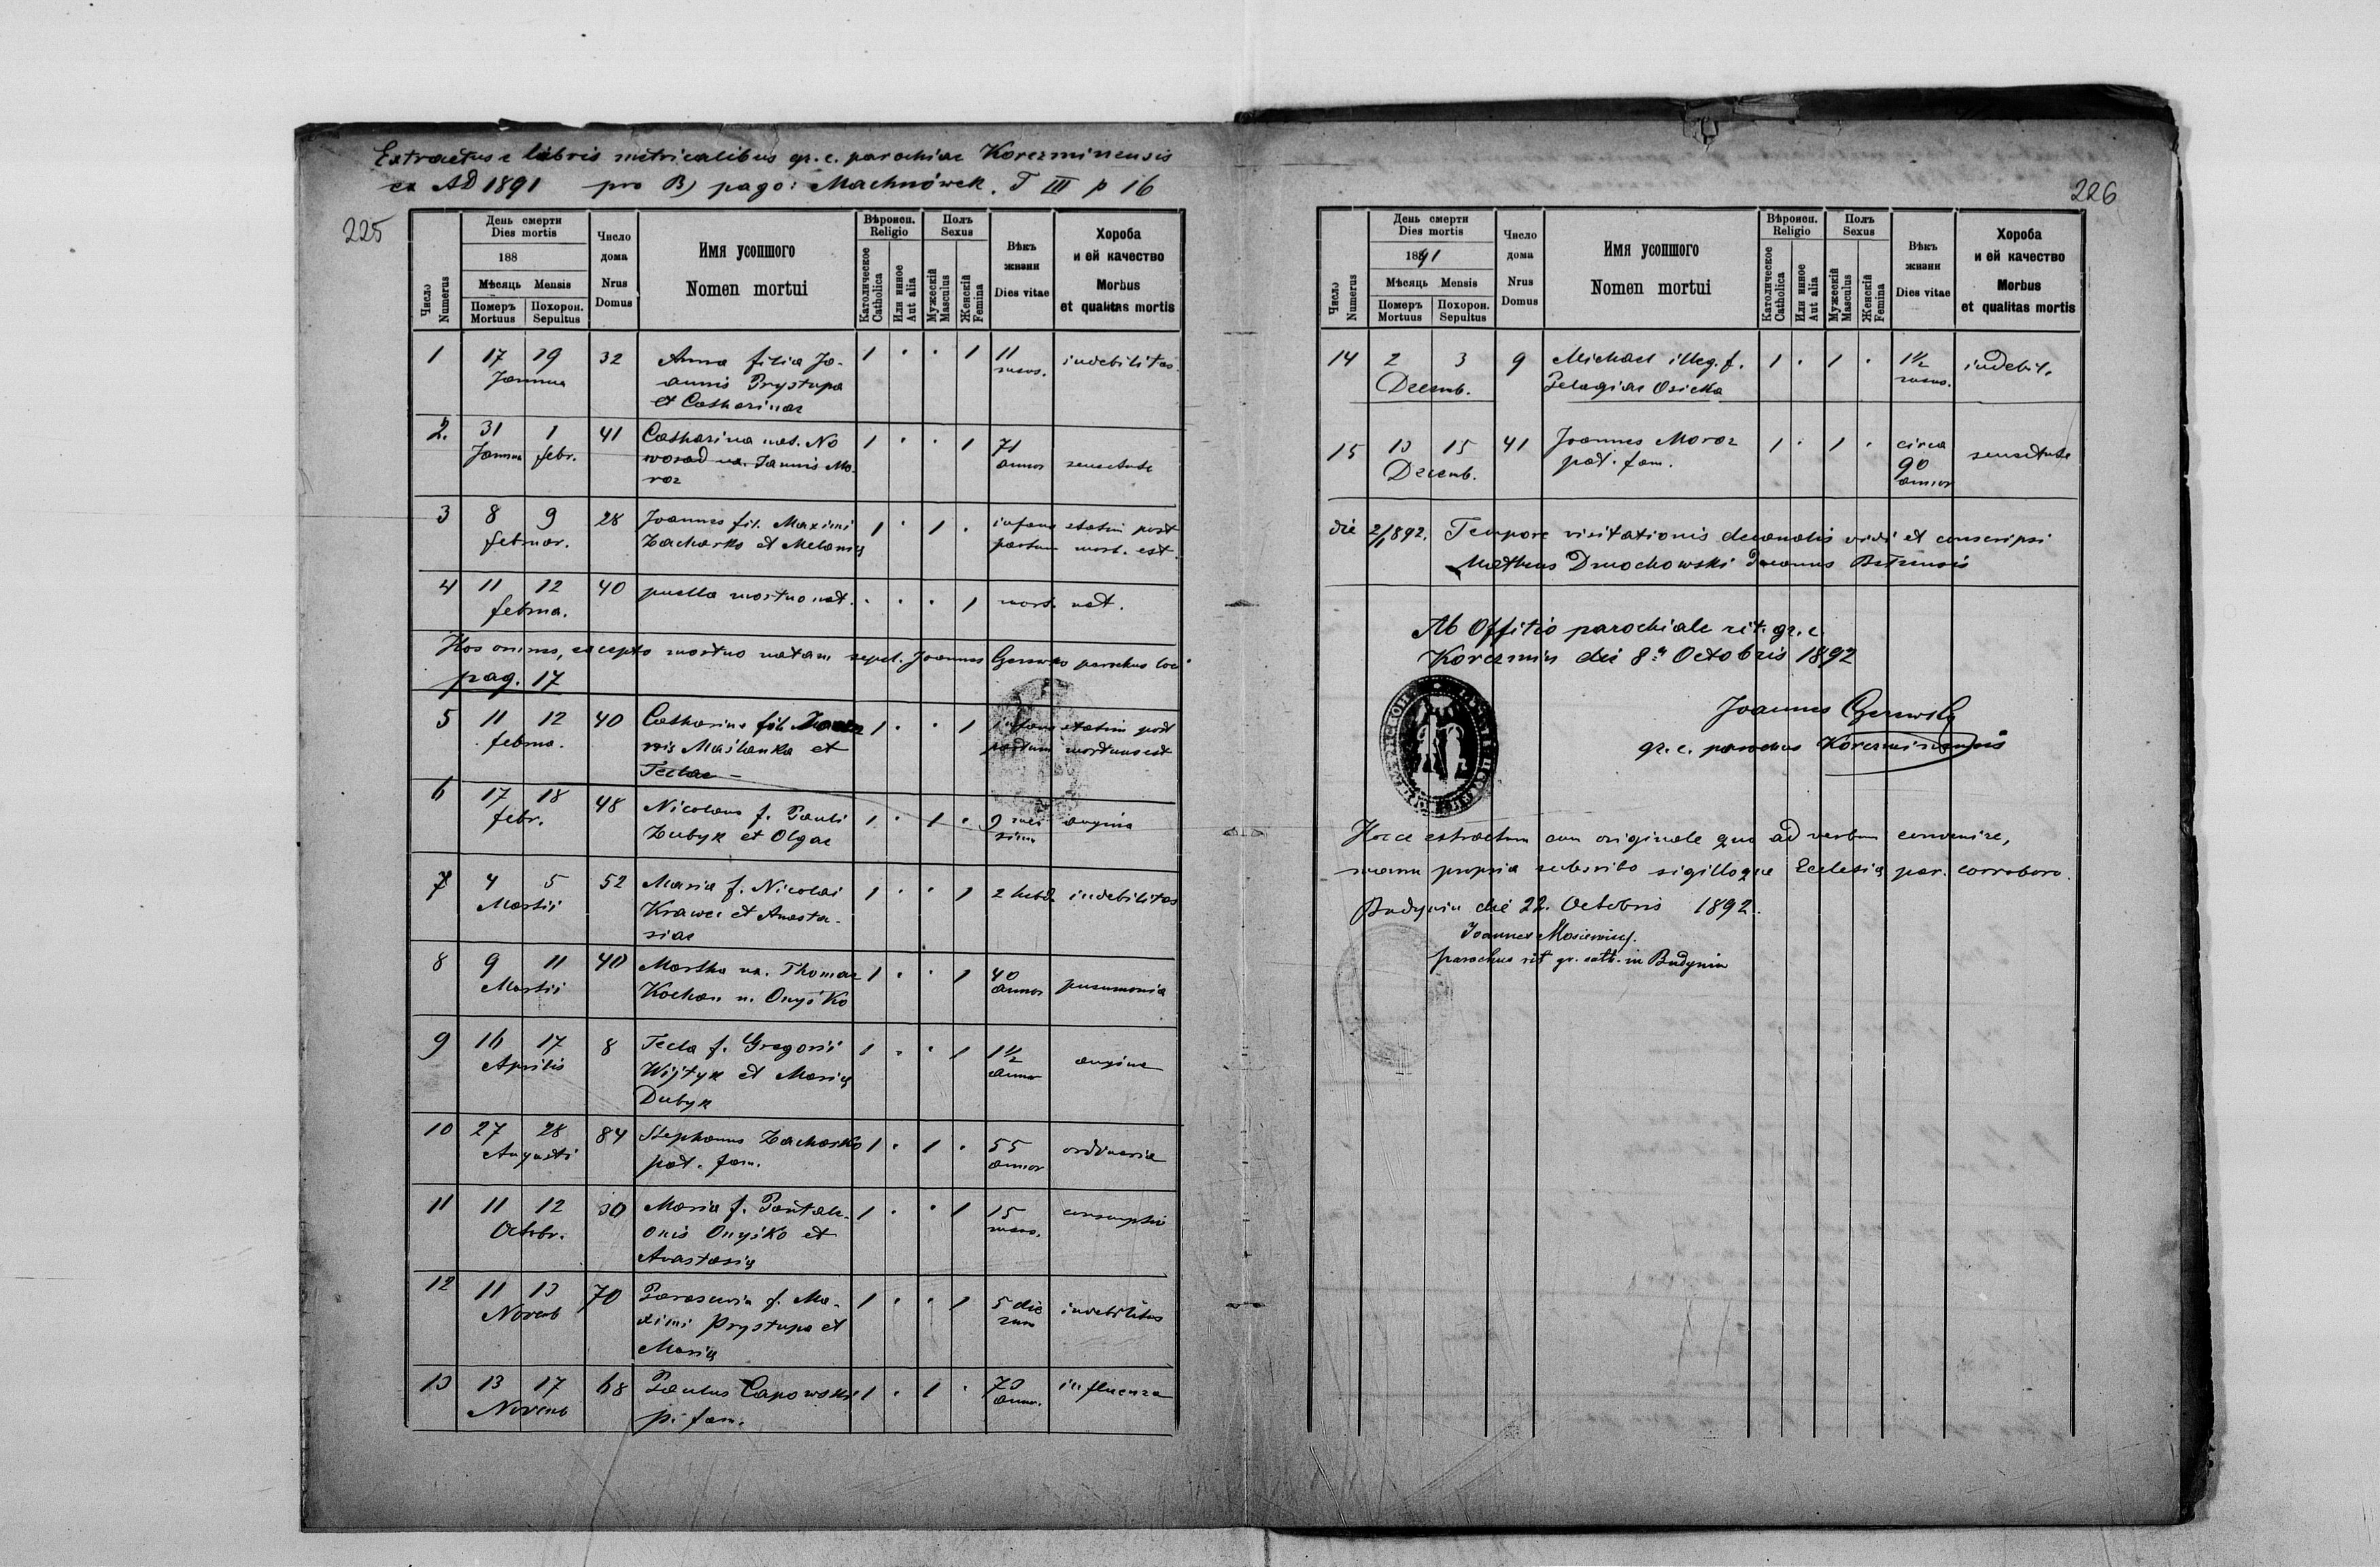 Extractus e libris metricalibus gr. c. parochiae Korczminensis
ex AD 1891 pro B) pago: Machnówek. T III p 16
225
Число Numerus
День смерти
Dies mortis
188
Мѣсяць Mensis
Померъ Mortuus
Похорон. Sepultus
Число дома
Nrus Domus
Имя усопшого
Nomen mortui
Вѣроисп. Religio
Католическое Catholica
Или инное Aut alia
Полъ Sexus
Мужескій Masculus
Женскій Femina
Вѣкъ жизни
Dies vitae
Хороба и ей качество
Morbus et qualitas mortis
1 17 19 32 Anna filia Jo- 1 . . 1 11 indebilitas
Janua annis Prystupa mens.
et Catharinae
2. 31 1 41 Catharina nat. No 1 . . 1 71
Janua febr. worad ux. Joannis Mo- annor senectute
roz
3 8 9 28 Joannes fil. Maximi 1 . 1 . infans statim post
februar. Zacharko et Melanię partum mort. est.
4 11 12 40 puella mortuo nat. . . . 1 mort. nat.
februa.
Hos omnes, excepto mortuo natam sepel. Joannes parochus loci
pag. 17
5 11 12 40 Catharina fil. Joan 1 . . 1 infans statim post
februa. nis Maślanka et partum mortuus est
Teclae —
6 17 18 48 Nicolaus f. Pauli 1 . 1 . 9 men angina
febr. Zubyk et Olgae sium
7 4 5 52 Maria f. Nicolai 1 . . 1 2 hebd. indebilitas
Martii Krawec et Anasta-
siae
8 9 11 40 Martha ux. Thomae 1 . . 1 40
Martii Kochan n. Onyśko annor pneumonia
9 16 17 8 Tecla f. Gregorii 1 . . 1 1½ angina
Aprilis Wijtyk et Marię anno
Dubyk
10 27 28 84 Stephanus Zacharko 1 . 1 . 55 ordinaria
Augusti pat. fam. annor
11 11 12 30 Maria f. Pantale- 1 . . 1 15 consumptio
Octobr. onis Onyśko et mens.
Anastasię
12 11 13 70 Parascevia f. Ma- 1 . . 1 5 die indebilitas
Novemb ximi Prystupa et rum
Marię
13 13 17 68 Paulus Capowski 1 . 1 . 73 influenza
Novemb p. fam. annor.
226
Число Numerus
День смерти
Dies mortis
1891
Мѣсяць Mensis
Померъ Mortuus
Похорон. Sepultus
Число дома
Nrus Domus
Имя усопшого
Nomen mortui
Вѣроисп. Religio
Католическое Catholica
Или инное Aut alia
Полъ Sexus
Мужескій Masculus
Женскій Femina
Вѣкъ жизни
Dies vitae
Хороба и ей качество
Morbus et qualitas mortis
14 2 3 9 Michael illeg. f. 1 . 1 . 1½ indebil.
Decemb. Pelagiae Osicka mens.
15 13 15 41 Joannes Moroz 1 . 1 . circa senectute
Decemb. pat. fam. 90
annor
die 2/1 892. Tempore visitationis decanalis vidi et conscripsi
Matheus Dmochowski Decanus
Ab Offitio parochiale rit. gr. c.
Korczmin die 8a Octobris 1892
Joannes
gr. c. parochus Korczminensis
Hocce extractum cum originale quo ad verbum convenire,
manu propria subscribo sigilloque Ecclesię par. corroboro.
Budynin die 22. Octobris 1892.
Joannes Mosiewicz.
parochus rit gr. cath. in Budynin